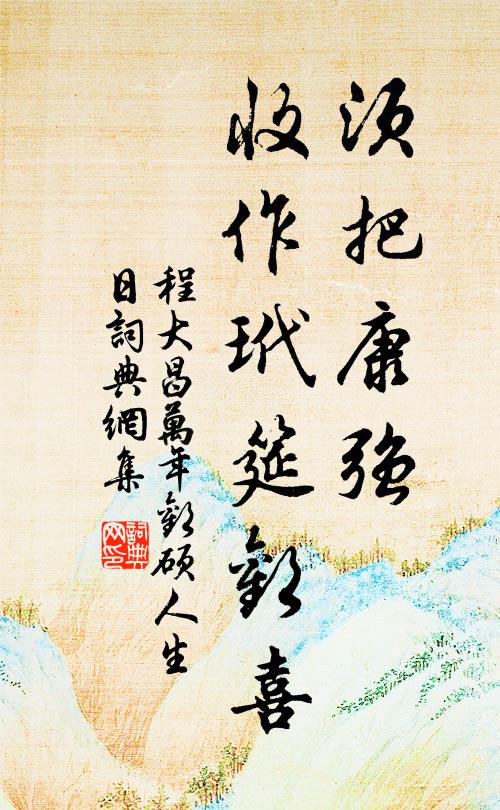 須把康強
收作玳筵歡喜
程大昌萬年歡碩人生
日詞典網集
詞典
网印